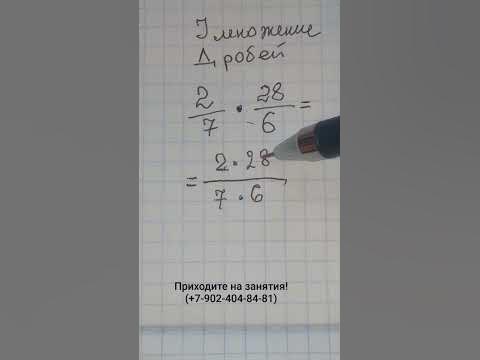 Умножение
Дробей
2/7 · 28/6 =
= 2 · 28 / 7 · 6
Приходите на занятия!
(+7-902-404-84-81)